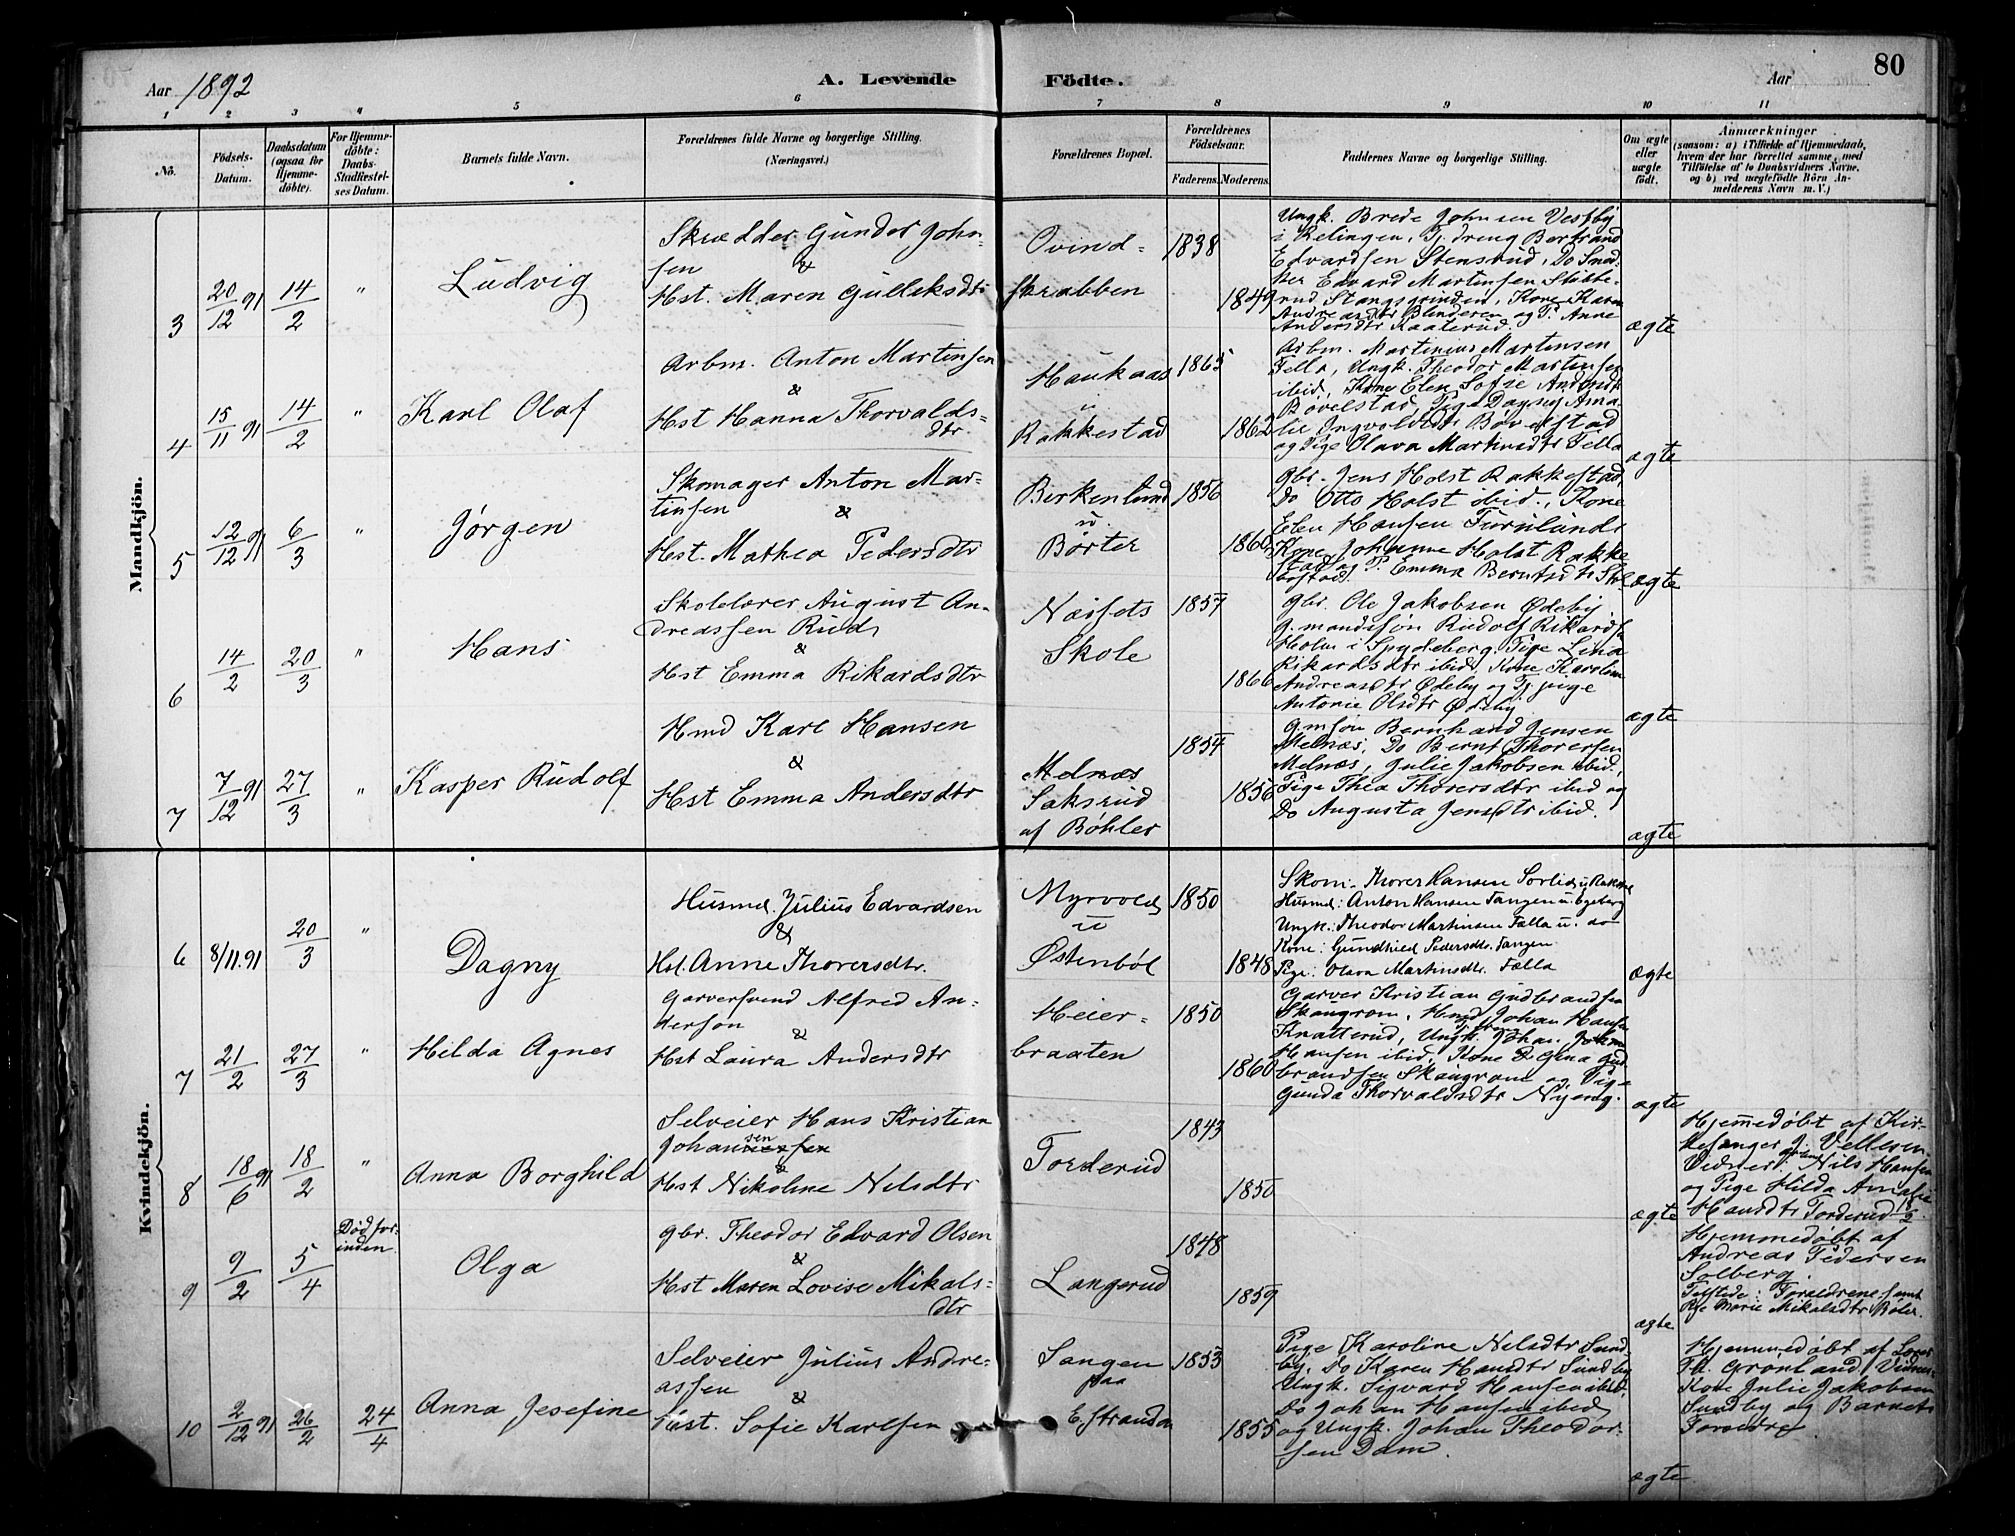 80
Aar 1892 A. Levende Födte. Aar
1 2 3 4 5 6 7 8 9 10 11
Nö.
Födsels-Datum.
Daabsdatum (ogsaa for Hjemmedöbte).
For Hjemmedöbte: Daabs-Stadfæstelses Datum.
Barnets fulde Navn.
Forældrenes fulde Navne og borgerlige Stilling.
(Næringsvei.)
Forældrenes Bopæl.
Forældrenes Födselsaar.
Faderens. Moderens.
Faddernes Navne og borgerlige Stilling.
Om ægte eller uægte født.
Anmærkninger
(saasom: a) i Tilfælde af Hjemmedaab,
hvem der har forrettet samme, med
Tilföielse af to Daabsvidners Navne,
og b) ved uægtefödte Börn An-
melderens Navn m. V.)
Mandkjön.
3 20/12 91 14/2 " Ludvig
Skrædder Gunder John-
sen &
Hst. Maren Gullaksdtr
Ovind-
skrabben
1838 1849
Ungk. Brede Johnsen Vestby
i Relingen, Tj. dreng Bertrand
Edvardsen Stensrud, Do
Edvard Martinsen Stubbe-
rud Stangsgrinden, Kone Karen
Andreasdtr Blinderen og P. Anne
Andersdtr Kaaterud.
ægte
4 15/11 91 14/2 " Karl Olaf
Arbm. Anton Martinsen
&
Hst Hanna Thorvalds-
dtr
Haukaas
u
Rakkestad
1865 1862
Arbm. Martinius Martinsen
Fella, Ungk. Theodor Martinsen
ibid, Kone Elen Sofie Andersdtr
Bøvelstad, Pige Dagny Ama-
lie Ingvoldsdtr Bøvelstad
og Pige Olava Martinsdtr Fella
ægte
5 12/12 91 6/3 " Jørgen
Skomager Anton Mar-
tinsen &
Hst. Mathea Pedersdtr
Birkenlund
u.
Børter
1856 1860
Gbr. Jens Holst Rakkestad,
Do Otto Holst ibid., Kone
Elen Hansen Furulund,
Kone Johanne Holst Rakke
stad og P. Emma Berntsdtr
ægte
6 14/2 20/3 " Hans
Skolelærer August An-
dreassen Rud
&
Hst Emma Rikardsdtr
Næssets
Skole
1857 1866
Gbr. Ole Jakobsen Ødeby
G.mandssøn Rudolf Rikards.
Holm i Spydeberg, Pige Lina
Rikardsdtr ibid, Kone Karoline
Andreasdtr Ødeby og Tj. pige
Antonie Olsdtr Ødeby
ægte
7 7/12 91 27/3 " Kasper Rudolf
Hmd Karl Hansen
&
Hst Emma Andersdtr
Melnæs
Saksrud
af Bøhler
1854 1856
Gmsøn Bernhard Jensen
Melnæs, Do Bernt Thoresen
Melnæs, Julie Jakobsen ibid,
Pige Thea Thoresdtr ibid og
Do Augusta Jensdtr ibid.
ægte
Kvindekjön.
6 8/11.91 20/3 " Dagny
Husmd. Julius Edvardsen
&
Hst. Anne Thoversdtr.
Myrvold
u
Østenbøl
1850 1848
Skom. Thorer Hansen Sorlie u. Rakke
Husmd: Anton Hansen Tangen u. Egeberg
Ungk: Theodor Martinsen Fælla u. do
Kone: Gundhild Pedersdtr. Tangen
Pige: Olava Martinsdtr. Fælla
ægte
7 21/2 27/3 " Hilda Agnes
Garversvend Alfred An-
dersøn &
Hst Laura Andersdtr
Heier-
braaten
1850 1860
Garver Kristian Gudbrandsen
Skaugrom, Hmd Johan Hansen
Knatterud, Ungk. Johan
Hansen ibid, Kone Gina Gud
brandsen Skaugrom og Pige
Gunda Thorvaldsdtr Nyeng.
ægte
8 18/6 91 18/2 " Anna Borghild
Selveier Hans Kristian
Johansen
&
Hst Nikoline Nilsdtr
Torderud
1843 1850
ægte
Hjemmedøbt af Kir-
kesanger J. Vellesen
Vidner: Nils Hansen
og Pige Hilda Amalie
Hansdtr Torderud 18/2
9 9/2 5/4 Død for-
inden. Olga
Gbr. Theodor Edvard Olsen
&
Hst Maren Lovise Mikals-
dtr
Langerud
1848 1859
ægte
Hjemmedøbt af
Andreas Pedersen
Solberg.
Tilstede: Forældrene samt
Pige Marie Mikalsdtr Bøler
10 2/12 91 26/2 24/4 Anna Josefine
Selveier Julius Andre-
assen &
Hust. Sofie Karlsen
Sangen
paa
E. stranda
1853 1855
Pige Karoline Nelsdtr Sund-
by, Do Karen Hansdtr Sundby,
Ungk. Sigvard Hansen ibid.
Do Johan Hansen ibid,
og Ungk. Johan Theodor-
sen Dam.
ægte
Hjemmedøbt af
Th. Grønland, Vidner:
Kone Julie Jakobsen
Sundby og Barnets
Forældre